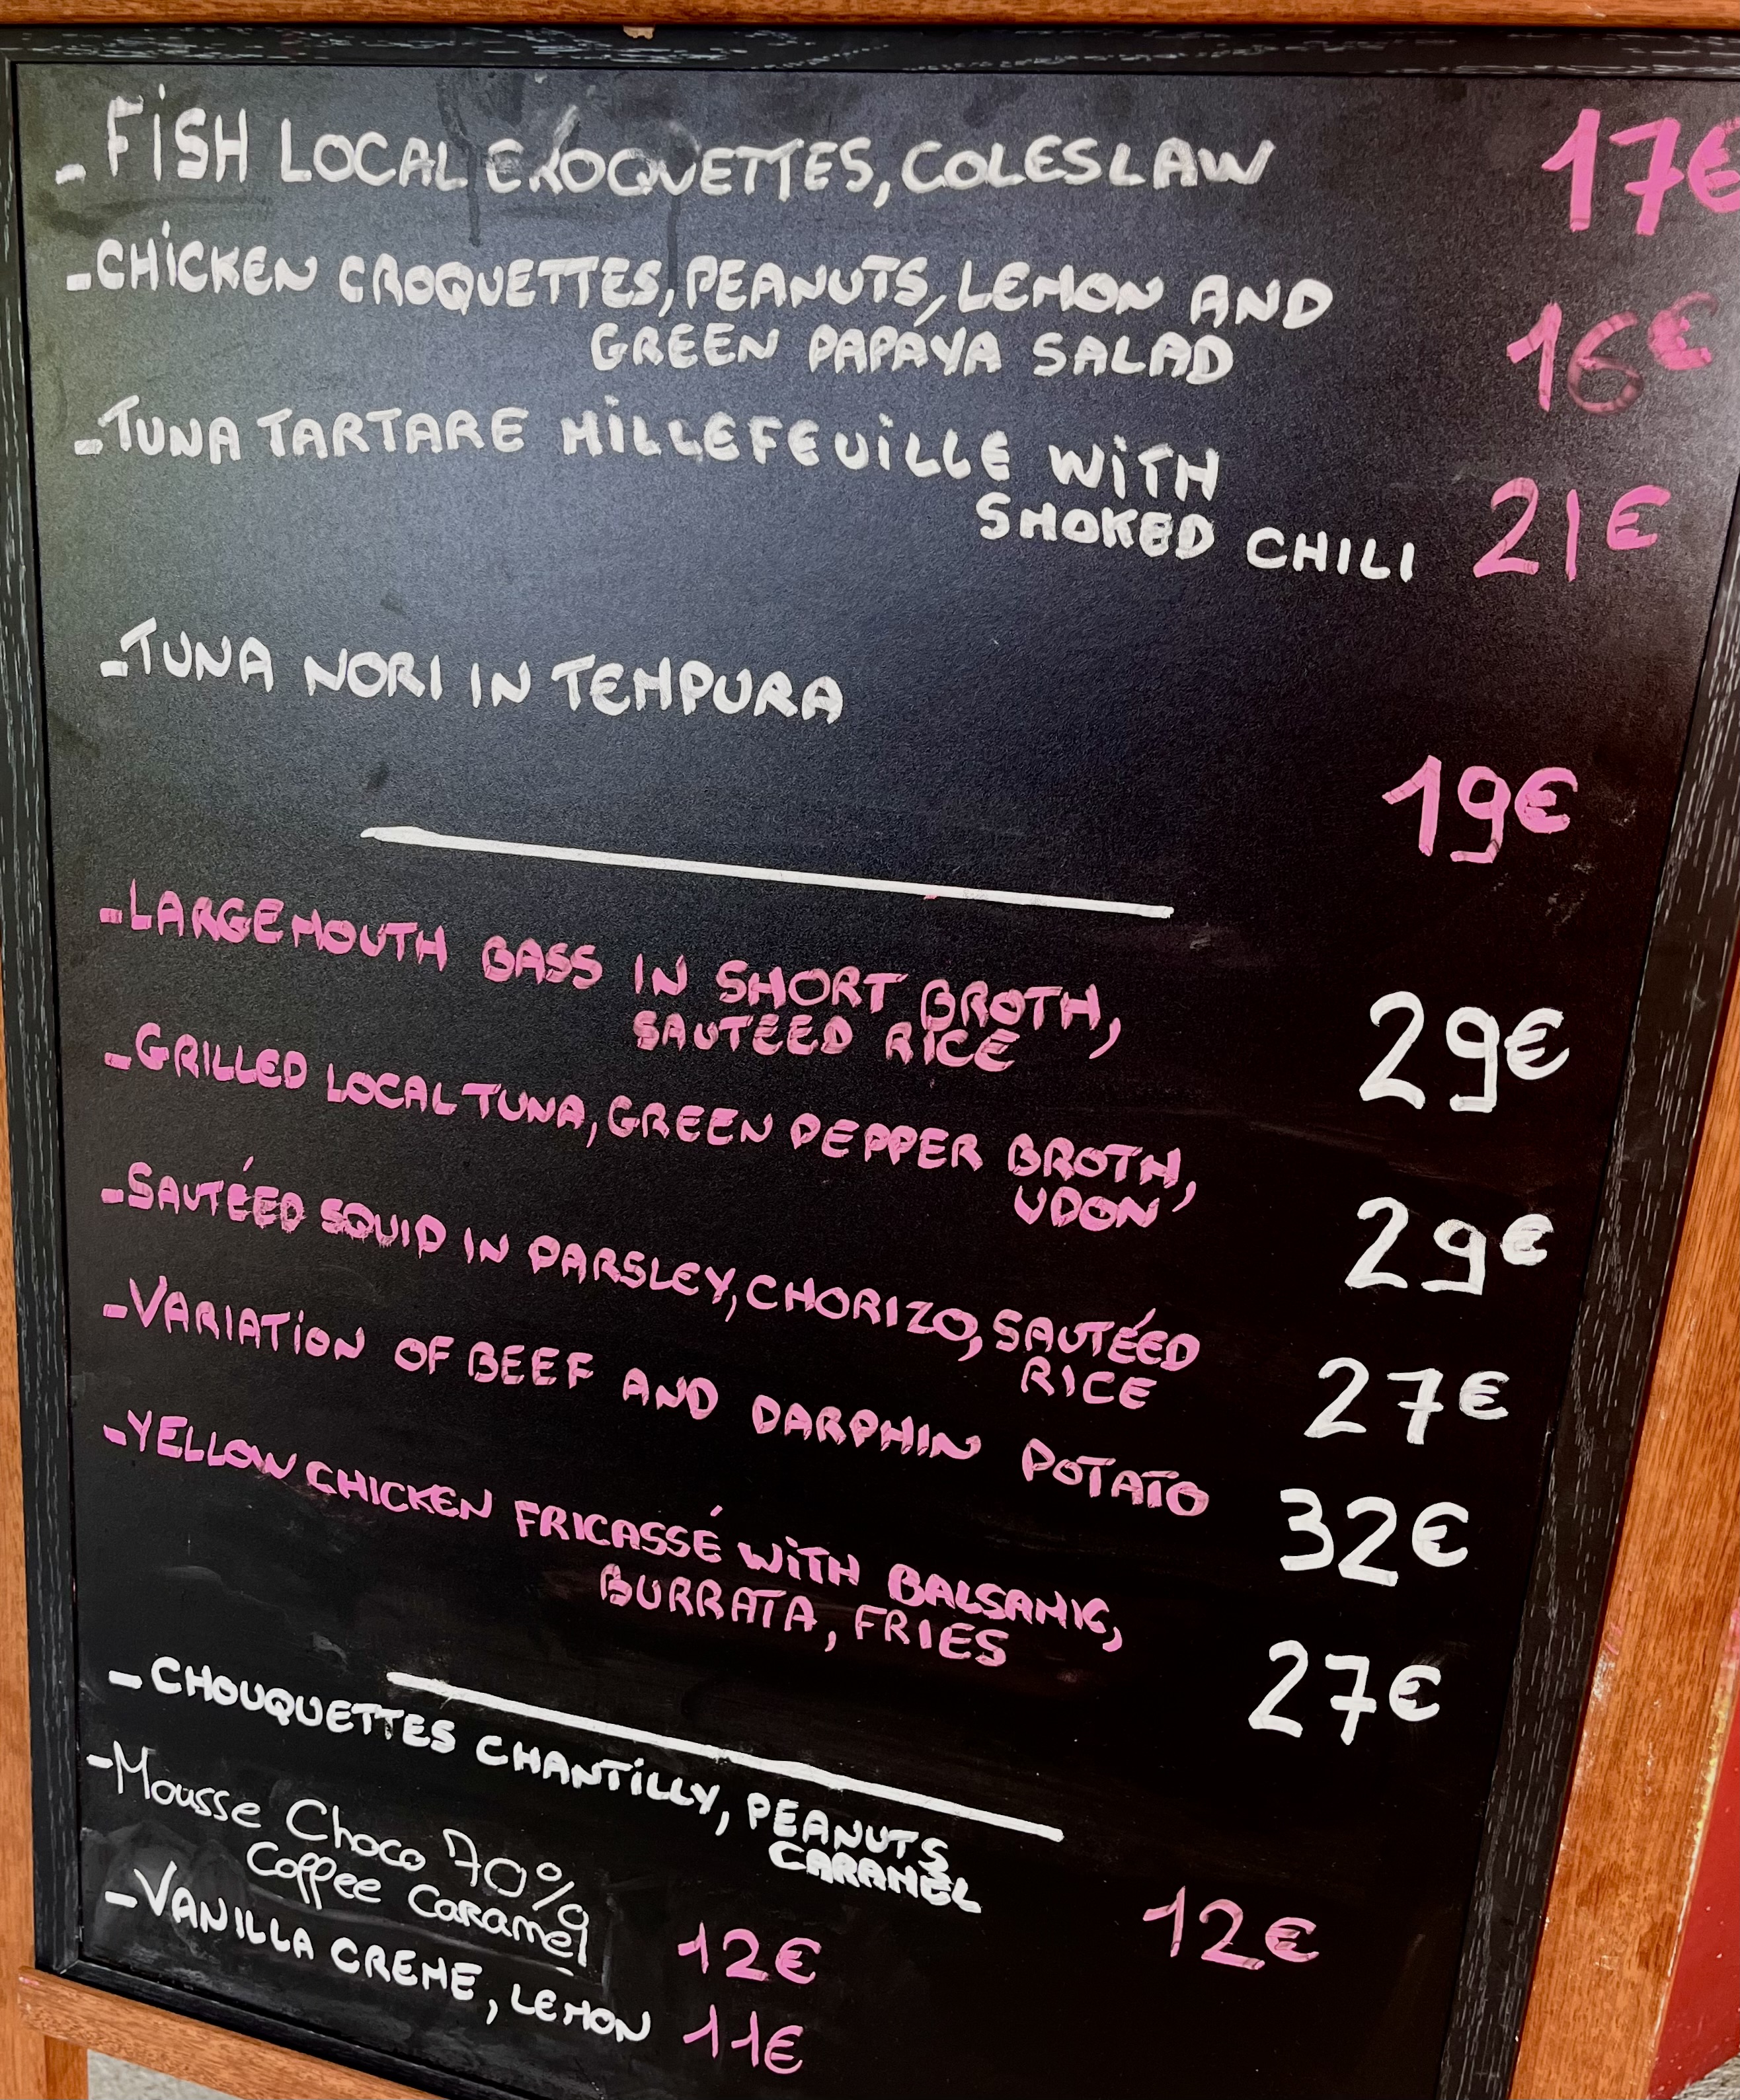 - FiSH LOCAL CROQUETTES, COLESLAW 17€
- CHiCKEN CROQUETTES, PEANUTS, LEMON AND
GREEN PAPAYA SALAD 16€
- TUNA TARTARE MiLLEFEUiLLE WiTH
SMOKED CHILI 21€
- TUNA NORI IN TEMPURA
19€
- LARGEMOUTH BASS IN SHORT BROTH,
SAUTEED RICE 29€
- GRILLED LOCAL TUNA, GREEN PEPPER BROTH,
UDON 29€
- SAUTÉED SQUID IN PARSLEY, CHORIZO, SAUTÉED
RICE 27€
- VARIATiON OF BEEF AND DARPHIN POTATO 32€
- YELLOW CHICKEN FRICASSÉ WiTH BALSAMIC,
BURRATA, FRIES 27€
- CHOUQUETTES CHANTiLLY, PEANUTS
CARAMEL 12€
- Mousse Choco 70%
Coffee Caramel 12€
- VANILLA CREME, LEMON 11€